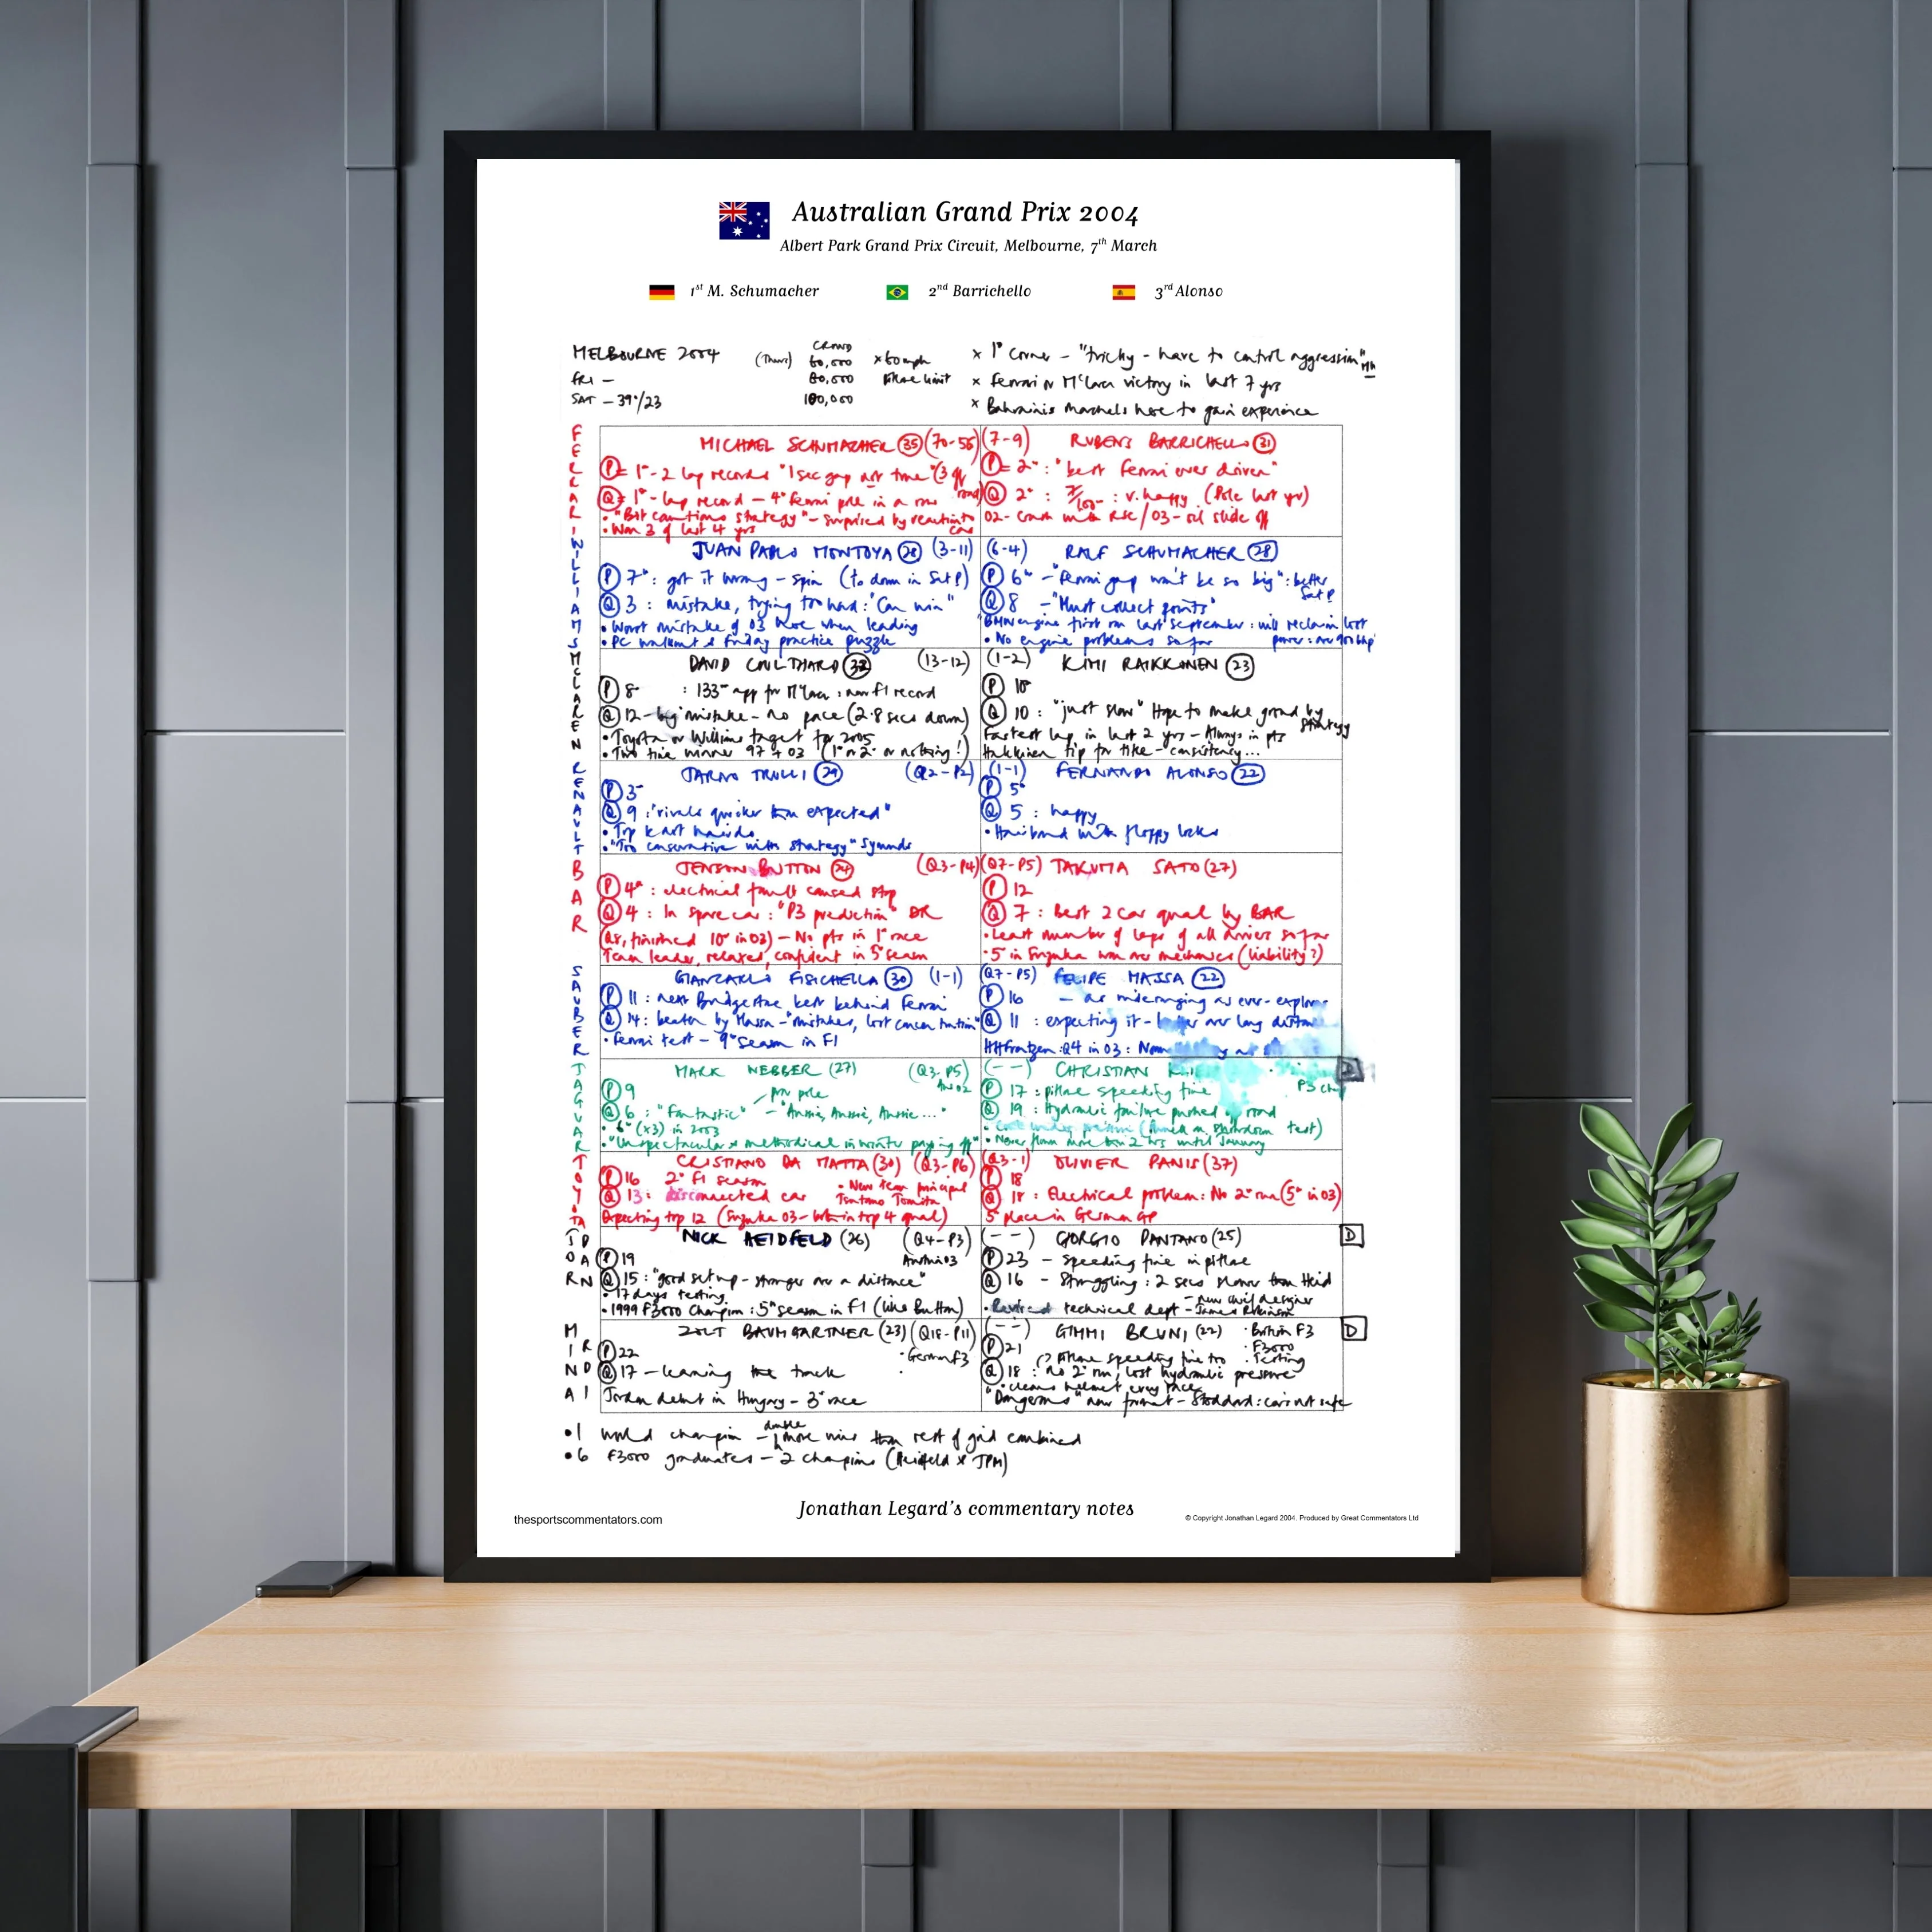 Australian Grand Prix 2004
Albert Park Grand Prix Circuit, Melbourne, 7th March
1st M. Schumacher 2nd Barrichello 3rd Alonso
MELBOURNE 2004 (Thurs) CROWD 60,000 x 60mph x 1st corner - "tricky - have to control aggression" MH
FRI - 80,000 pitlane limit x Ferrari or McLaren victory in last 7 yrs
SAT - 39°/23 100,000 x Bahrainis marshals here to gain experience
FERRARI
MICHAEL SCHUMACHER (35) (70-55)
P = 1st - 2 lap records "1 sec gap not true" (3
Q = 1st - lap record - 4th Ferrari pole in a row
• "Bit cautious strategy" - surprised by reaction to car
• Won 3 of last 4 yrs
(7-9) RUBENS BARRICHELLO (31)
P = 2nd : "best Ferrari ever driven"
Q 2nd : 7/100 : v. happy (Pole last yr)
02 - crash with RSC / 03 - oil slide off
WILLIAMS
JUAN PABLO MONTOYA (28) (3-11)
P 7th : got it wrong - spin (to down in Sat P)
Q 3 : mistake, trying too hard : "Can win"
• Worst mistake of 03 here when leading
• PC walkout & Friday practice puzzle
(6-4) RALF SCHUMACHER (28)
P 6th - "Ferrari gap won't be so big" : better Sat P
Q 8 - "Must collect points"
BMW engine first run last September : will reclaim lost
• No engine problems so far power : over 900 bhp
MCLAREN
DAVID COULTHARD (32) (13-12)
P 8 : 133rd app for McLaren : new F1 record
Q 12 - big mistake - no pace (2.8 secs down)
• Toyota or Williams target for 2005
• Two time winner 97 + 03 (1st or 2nd or nothing!)
(1-2) KIMI RAIKKONEN (23)
P 10
Q 10 : "just slow" Hope to make ground by strategy
Fastest lap in last 2 yrs - Always in pts
Hakkinen tip for title - consistency...
RENAULT
JARNO TRULLI (29) (Q2-P2)
P 3rd
Q 9 : "rivals quicker than expected"
• Top kart hairdo
• "Too conservative with strategy" Symonds
(1-1) FERNANDO ALONSO (22)
P 5th
Q 5 : happy
• Hairband with floppy locks
BAR
JENSON BUTTON (24) (Q3-P4)
P 4th : electrical fault caused stop
Q 4 : In spare car : "P3 prediction" DR
(Q8, finished 10th in 03) - No pts in 1st race
Team leader, relaxed, confident in 5th season
(Q7-P5) TAKUMA SATO (27)
P 12
Q 7 : Best 2 car qual by BAR
• Least number of laps of all drivers so far
• 5 in Suzuka won over mechanics (liability?)
SAUBER
GIANCARLO FISICHELLA (30) (1-1)
P 11 : next Bridgestone best behind Ferrari
Q 14 : beaten by Massa - "mistakes, lost concentration"
• Ferrari test - 9th season in F1
(Q7-P5) FELIPE MASSA (22)
P 16 - as wideranging as ever -
Q 11 : expecting it - better over long distance
HHFrentzen : Q4 in 03 :
JAGUAR
MARK WEBBER (27) (Q3-P5)
P 9 for pole
Q 6 : "Fantastic" - "Aussie, Aussie, Aussie..."
• 6th (x3) in 2003
• "Unspectacular & methodical in winter paying off"
(--) CHRISTIAN
P 17 : pitlane speeding fine
Q 19 : Hydraulic failure pushed off road
• Never flown more than 2 hrs until January
TOYOTA
CRISTIANO DA MATTA (30) (Q3-P6)
P 16 2nd F1 season • New team principal
Q 13 : disconnected car Tsutomo Tomita
Expecting top 12 (Suzuka 03 - both in top 4 qual)
(Q3-1) OLIVIER PANIS (37)
P 18
Q 18 : Electrical problem : No 2nd run (5th in 03)
5th place in German GP
JORDAN
NICK HEIDFELD (26) (Q4-P3)
P 19 Austria 03
Q 15 : "good set up - stronger over a distance"
• 17 days testing
• 1999 F3000 Champion : 5th season in F1 (like Button)
(--) GIORGIO PANTANO (25) D
P 23 - Speeding fine in pitlane
Q 16 - Struggling : 2 secs slower than Heid
• Revised technical dept - new chief designer James Robinson
MINARDI
ZSOLT BAUMGARTNER (23) (Q18-P11)
P 22 • German F3
Q 17 - learning the track
Jordan debut in Hungary - 3rd race
(--) GIMMI BRUNI (22) • British F3 D
P 21 • F3000
pitlane speeding fine too • Testing
Q 18 : No 2nd run, lost hydraulic pressure
• cleans helmet every race
"Dangerous" new format - Stoddard : cars not safe
• 1 world champion - double more wins than rest of grid combined
• 6 F3000 graduates - 2 champions (Heidfeld & JPM)
Jonathan Legard's commentary notes
thesportscommentators.com
© Copyright Jonathan Legard 2004. Produced by Great Commentators Ltd